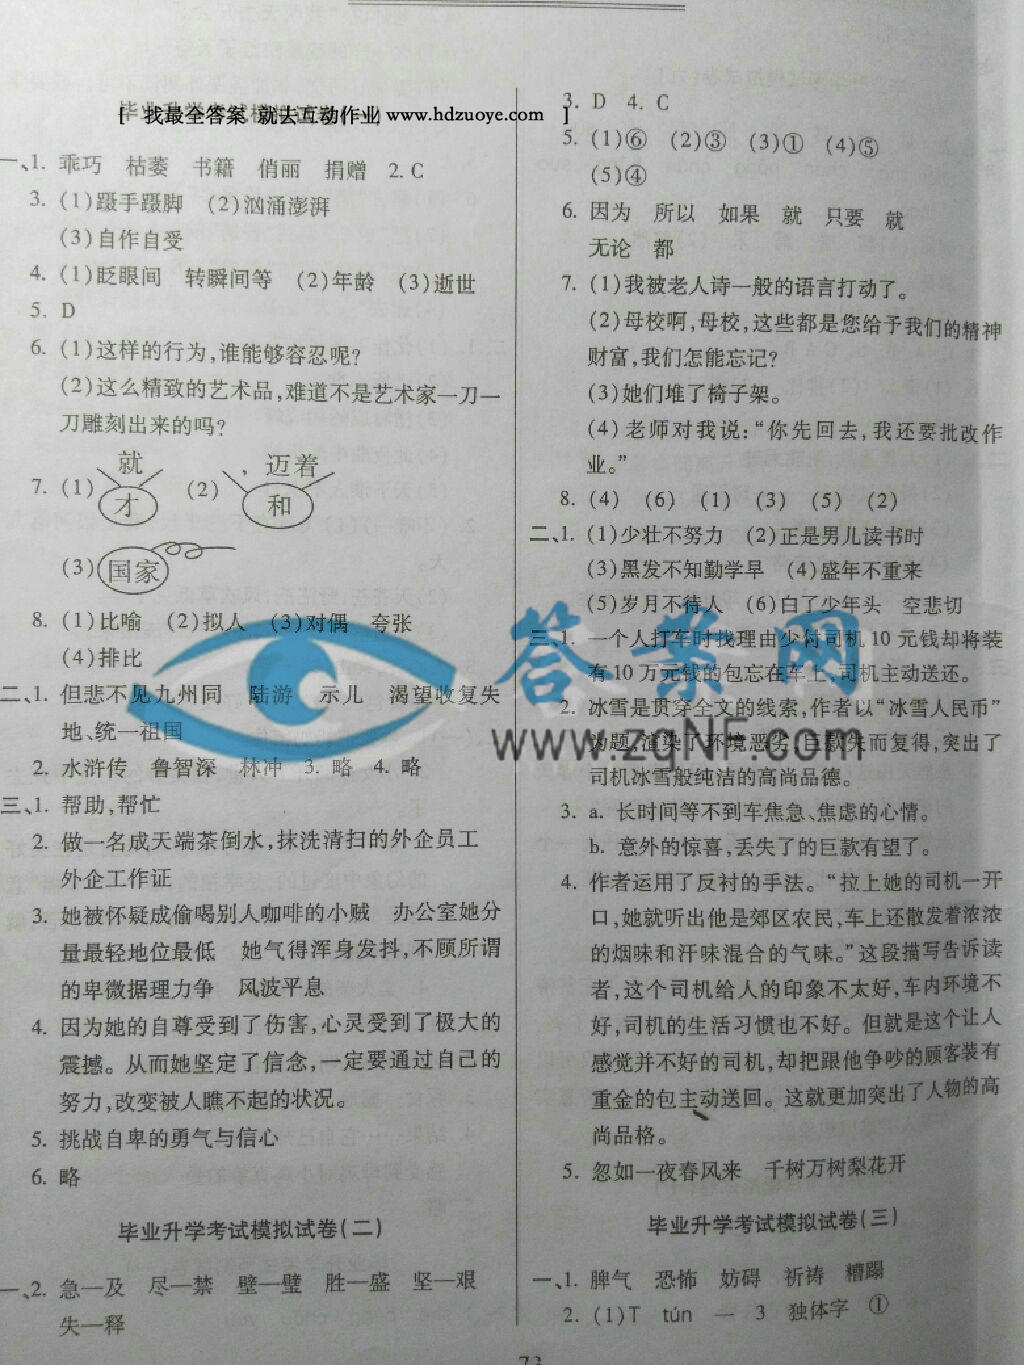 毕业升学考试模拟试卷(一)
[ 我最全答案 就去互动作业 www.hdzuoye.com ]
一、1. 乖巧 枯萎 书籍 俏丽 捐赠 2. C
3. (1)蹑手蹑脚 (2)汹涌澎湃
(3)自作自受
4. (1)眨眼间 转瞬间等 (2)年龄 (3)逝世
5. D
6. (1)这样的行为,谁能够容忍呢?
(2)这么精致的艺术品,难道不是艺术家一刀一
刀雕刻出来的吗?
就 , 迈着
7. (1) 才 (2) 和
(3) 国家
8. (1)比喻 (2)拟人 (3)对偶 夸张
(4)排比
二、1. 但悲不见九州同 陆游 示儿 渴望收复失
地、统一祖国
2. 水浒传 鲁智深 林冲 3. 略 4. 略
三、1. 帮助,帮忙
2. 做一名成天端茶倒水,抹洗清扫的外企员工
外企工作证
3. 她被怀疑成偷喝别人咖啡的小贼 办公室她分
量最轻地位最低 她气得浑身发抖,不顾所谓
的卑微据理力争 风波平息
4. 因为她的自尊受到了伤害,心灵受到了极大的
震撼。从而她坚定了信念,一定要通过自己的
努力,改变被人瞧不起的状况。
5. 挑战自卑的勇气与信心
6. 略
毕业升学考试模拟试卷(二)
一、2. 急—及 尽—禁 壁—璧 胜—盛 坚—艰
失—释
3. D 4. C
5. (1)⑥ (2)③ (3)① (4)⑤
(5)④
6. 因为 所以 如果 就 只要 就
无论 都
7. (1)我被老人诗一般的语言打动了。
(2)母校啊,母校,这些都是您给予我们的精神
财富,我们怎能忘记?
(3)她们堆了椅子架。
(4)老师对我说:“你先回去,我还要批改作
业。”
8. (4) (6) (1) (3) (5) (2)
二、1. (1)少壮不努力 (2)正是男儿读书时
(3)黑发不知勤学早 (4)盛年不重来
(5)岁月不待人 (6)白了少年头 空悲切
三、1. 一个人打车时找理由少付司机 10 元钱却将装
有 10 万元钱的包忘在车上,司机主动送还。
2. 冰雪是贯穿全文的线索,作者以“冰雪人民币”
为题,渲染了环境恶劣,巨款失而复得,突出了
司机冰雪般纯洁的高尚品德。
3. a. 长时间等不到车焦急、焦虑的心情。
b. 意外的惊喜,丢失了的巨款有望了。
4. 作者运用了反衬的手法。“拉上她的司机一开
口,她就听出他是郊区农民,车上还散发着浓浓
的烟味和汗味混合的气味。”这段描写告诉读
者,这个司机给人的印象不太好,车内环境不
好,司机的生活习惯也不好。但就是这个让人
感觉并不好的司机,却把跟他争吵的顾客装有
重金的包主动送回。这就更加突出了人物的高
尚品格。
5. 忽如一夜春风来 千树万树梨花开
毕业升学考试模拟试卷(三)
一、1. 脾气 恐怖 妨碍 祈祷 糟蹋
2. (1)T tún 一 3 独体字 ①
73
答案网
www.zqNF.com